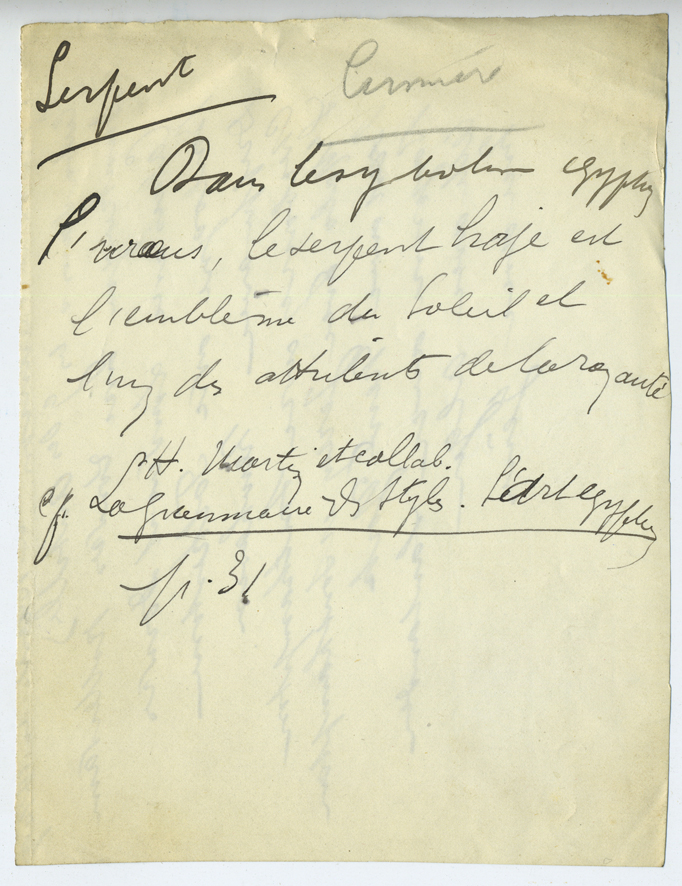 Serpent Lumière
Dans le symbolisme égyptien
l'uraeus, le serpent haje est
l'emblème du Soleil et
l'un des attributs de la royauté
H. Martin et collab.
cf. La grammaire des Styles. L'art égyptien
p. 31